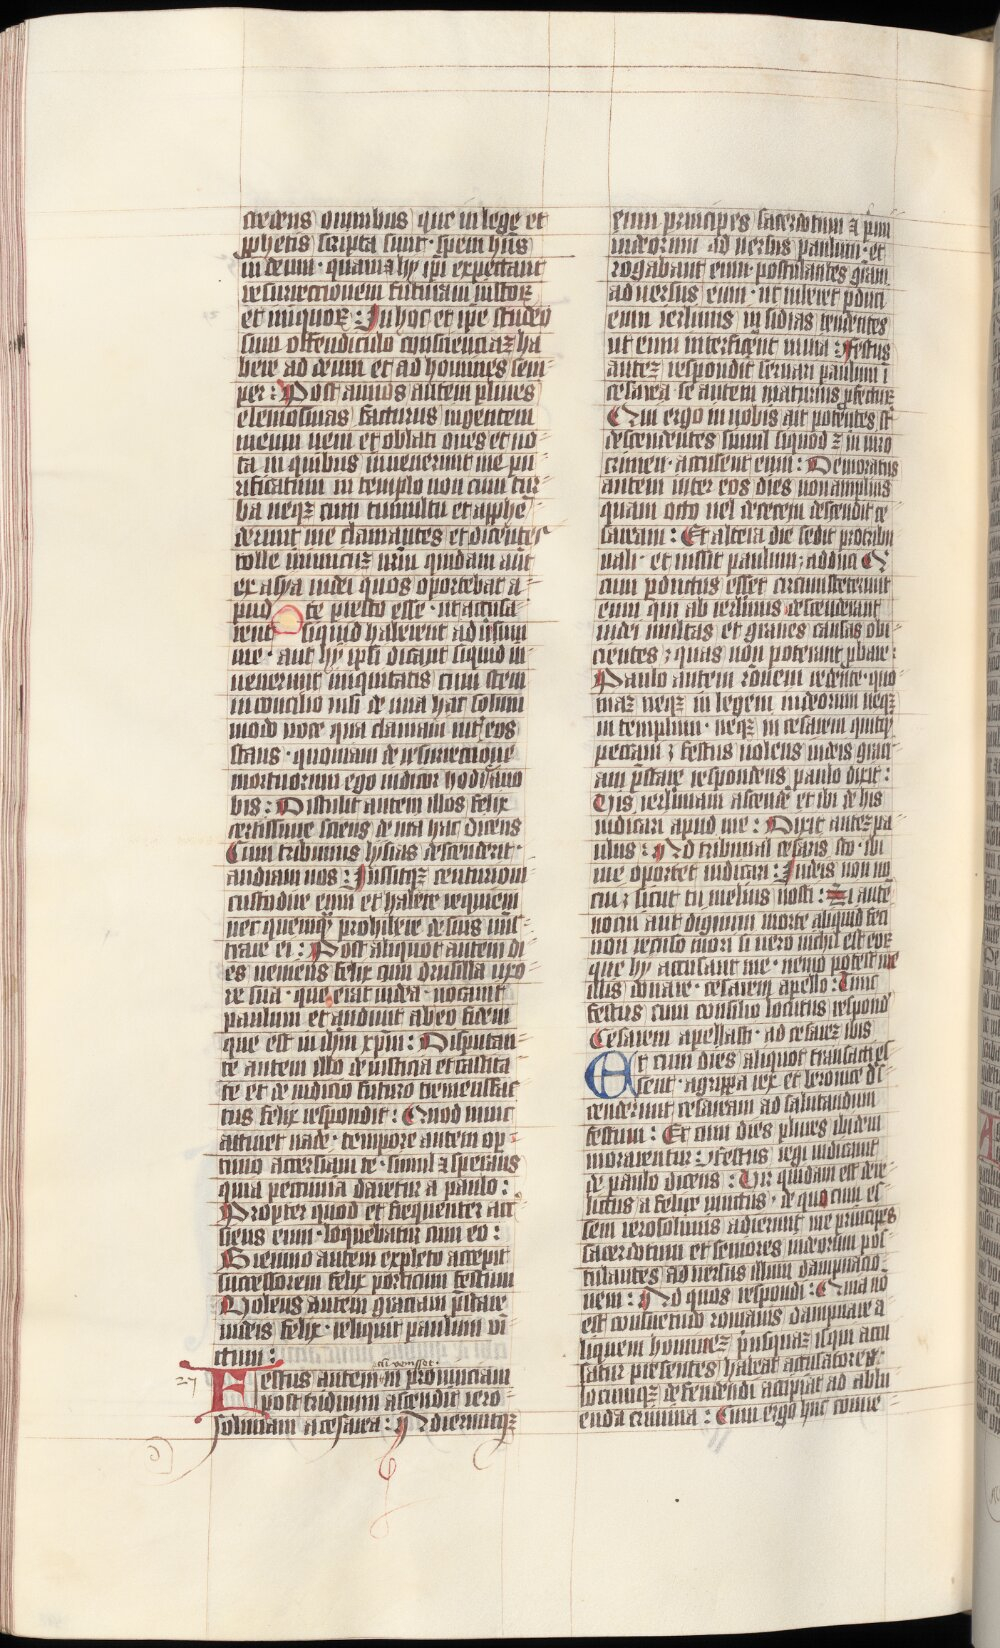 credens omnibus que in lege et
prophetis scripta sunt · spem hns
in deum · quam ⁊ hy ipi expectant
resurrectionem futuram iustoꝝ
et iniquoꝝ : In hoc et ipe studeo
sine offendiculo consciencia ha
bere ad deum et ad homines sem
per : Post annos autem plures
elemosinas facturus in gentem
meam veni et oblationes et uo
ta in quibus inuenerunt me pu
rificatum in templo non cum tur
ba neqꝫ cum tumultu et apphe
derunt me clamantes et dicentes
tolle inimicuꝫ nrm quidam aut
ex asya iudei quos oportebat a
pud te presto esse · ut accusa
rent siquid haberent aduersum
me · aut hy ipsi dicant siquid in
uenerunt iniquitatis cum stem
in concilio nisi de una hac solum
modo uoce qua clamaui int eos
stans · quoniam de resurrectione
mortuorum ego iudicor hodie a uo
bis : Distulit autem illos felix
certissime sciens de uia hac dicens
Cum tribunus lysias descenderit ·
audiam uos : Iussitqꝫ centurioni
custodire eum et habere requiem
nec quemqꝫ prohibere de suis mis
trare ei : Post aliquot autem di
es ueniens felix cum drusilla uxo
re sua · que erat iudea · uocauit
paulum et audiuit ab eo fidem
que est in ihm xpm : Disputan
te autem illo de iusticia et castita
te et de iudicio futuro tremefac
tus felix respondit : Quod nunc
attinet uade · tempore autem op
tuno accersiam te · simul ⁊ sperans
quia peccunia daretur a paulo :
Propter quod et frequenter acc
siens eum · loquebatur cum eo :
Biennio autem expleto accepit
successorem felix porticum festum
Uolens autem graciam pstare
iudeis felix · reliquit paulum ui
ctum :
cu venisset
27 Festus autem in prouinciam
post triduum ascendit iero
solimam a cesarea : Adieruntqꝫ
eum principes sacerdotum ⁊ pmi
iudeorum aduersus paulum · et
rogabant eum · postulantes gram
aduersus eum · ut iuberet pduci
eum ierlimis insidias tendentes
ut eum interficerent in uia : Festus
auteꝫ respondit seruari paulum i
cesarea · se autem maturius pfecturꝫ
Qui ergo in uobis ait potentes st
descendentes simul siquod ⁊ in uiro
crimen · accusent eum : Demoratus
autem inter eos dies non amplius
quam octo uel decem descendit ce
saream : Et altera die sedit pro tribu
nali · et iussit paulum adduci Qi
cum pductus esset circumsteterunt
eum qui ab ierlimis descenderant
iudei multas et graues causas obi
cientes quas non poterant pbare :
Paulo autem rōnem redente · quo
niaꝫ neqꝫ in legem iudeorum neqꝫ
in templum · neqꝫ in cesarem quitqꝫ
peccaui festus uolens iudeis graci
am pstare respondens paulo dixit :
Uis ierlimam ascende et ibi de his
iudicari apud me : Dixit auteꝫ pa
ulus : Ad tribunal cesaris sto · ibi
me oportet iudicari : Iudeis non no
cui sicut tu melius nosti : Si aute
nocui aut dignum morte aliquid feci
non recuso mori si uero nichil est eoꝝ
que hy accusant me · nemo potest me
illis donare · cesarem apello : Tunc
festus cum consilio locutus respond
Cesarem apellasti · ad cesareꝫ ibis
Et cum dies aliquot transacti es
sent · agrippa rex et beronice des
cenderunt cesaream ad salutandum
festum : Et cum dies plures ibidem
morarentur festus regi indicauit
de paulo dicens : Uir quidam est dere
lictus a felice uinctus · de quo cum es
sem ierosolimis adierunt me principes
sacerdotum et seniores iudeorum pos
tulantes aduersus illum dampnacio
nem : Ad quos respondi : Quia no
est consuetudo romanis dampnare a
liquem hominem priusquaꝫ is qui accu
satur presentes habeat accusatores ·
locumqꝫ defendendi accipiat ad ablu
enda crimina : Cum ergo huc conue